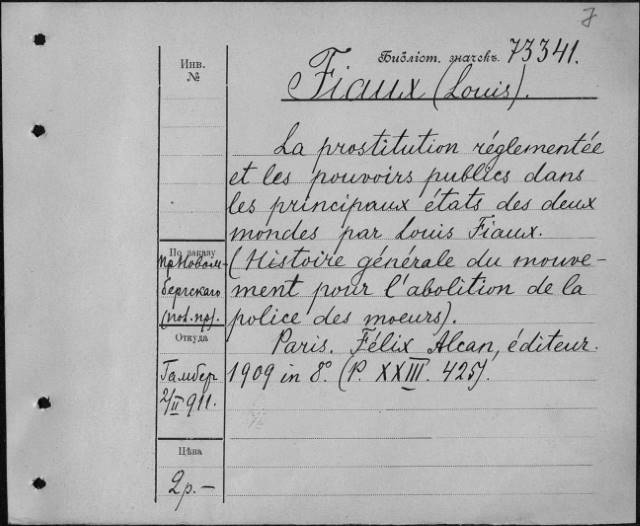 Библіот. значекъ 73341.
Инв.
№
Fiaux (Louis).
La prostitution réglementée
et les pouvoirs publics dans
les principaux états des deux
mondes par Louis Fiaux.
(Histoire générale du mouve-
ment pour l'abolition de la
police des moeurs).
Paris. Félix Alcan, éditeur.
1909 in 8°. (P. XXIII. 425).
По заказу
пр. Новом-
бергскаго
Откуда
Гамбер
2/II 911.
Цѣна
2 р.—